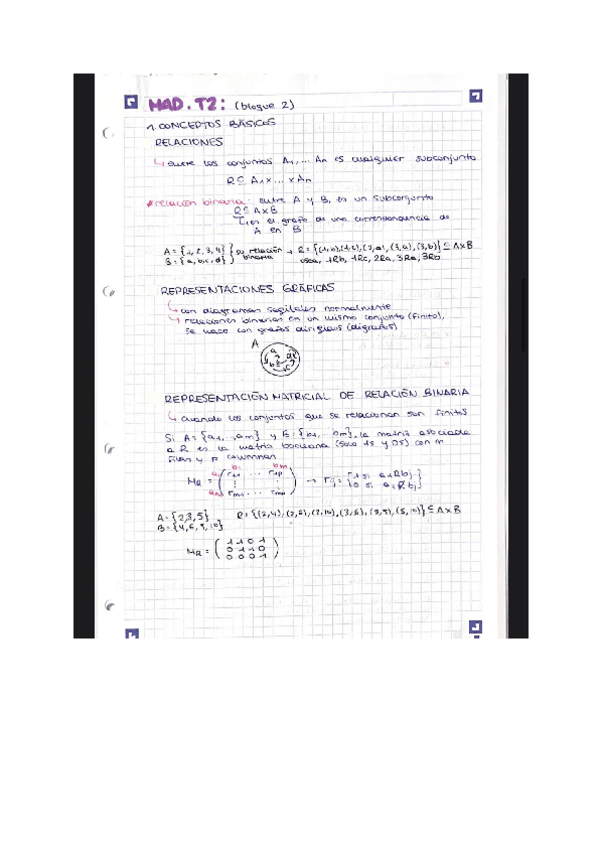 MAD. T2: (bloque 2)
1. CONCEPTOS BÁSICOS
RELACIONES
↳ entre los conjuntos A₁,... An es cualquier subconjunto
R ⊆ A₁ x ... x An
relación binaria: entre A y B, es un subconjunto
R ⊆ A x B
es el grafo de una correspondencia de
A en B
A = {1, 2, 3, 4} } su relación → R = {(1,b),(1,c),(2,a),(3,a),(3,b)} ⊆ A x B
B = {a, b, c, d} } binaria 1Rb, 1Rc, 2Ra, 3Ra, 3Rb
REPRESENTACIONES GRÁFICAS
↳ con diagramas sagitales normalmente
↳ relaciones binarias en un mismo conjunto (finito),
se hace con grafos dirigidos (digrafos)
A
REPRESENTACIÓN MATRICIAL DE RELACIÓN BINARIA
↳ cuando los conjuntos que se relacionan son finitos
Si A = {a₁,..., am} y B = {b₁, ... bm}, la matriz asociada
a R es la matriz booleana (solo 1s y 0s) con m
filas y p columnas
b₁ bm
MR = a₁ ( r₁₁ ... r₁p
⋮ ⋮ ) → rij = { 1 si aiRbj
am rm₁ ... rmp 0 si aiR̸bj }
A = {2,3,5} R = {(2,4),(2,6),(2,10),(3,6),(3,9),(5,10)} ⊆ A x B
B = {4,6,9,10}
MR = ( 1 1 0 1
0 1 1 0
0 0 0 1 )